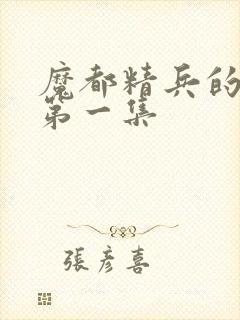 魔都精兵的
第一集
張彥喜